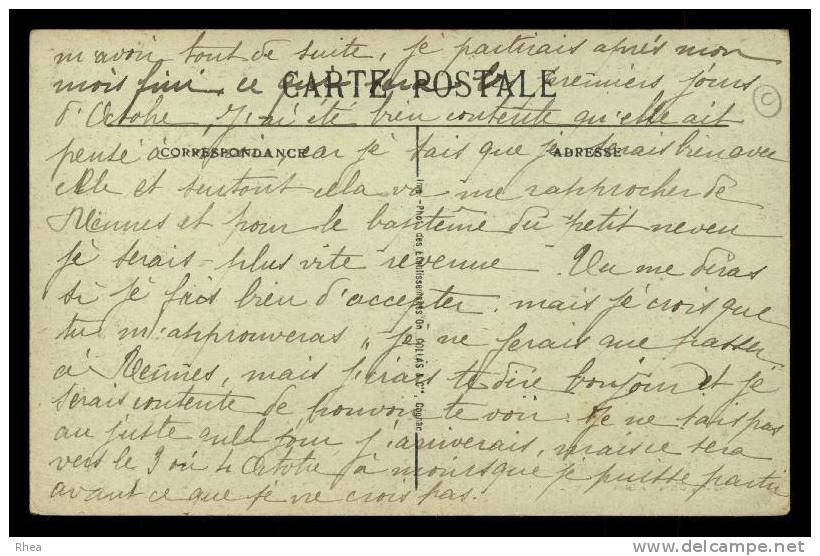 m'avoir tout de suite, je partirais après mon
mois fini, ce premiers jours
CARTE POSTALE
d'Octobre, j'ai été bien contente qu'elle ait
pensé à car je sais que je serais bien avec
CORRESPONDANCE
ADRESSE
elle et surtout cela va me rapprocher de
Rennes et pour le baptême du petit neveu
je serais plus vite revenue - Tu me diras
si je fais bien d'accepter. mais je crois que
tu m'approuveras, je ne ferais que passer
à Rennes, mais j'irais te dire bonjour et je
serais contente de pouvoir te voir. Je ne sais pas
au juste quel jour j'arriverais, mais ce sera
vers le 3 ou 4 Octobre à moins que je puisse partir
avant ce que je ne crois pas.
Phot. des Etablissements COLLAS & Cie, Cognac
C
Rhea
www.delcampe.net